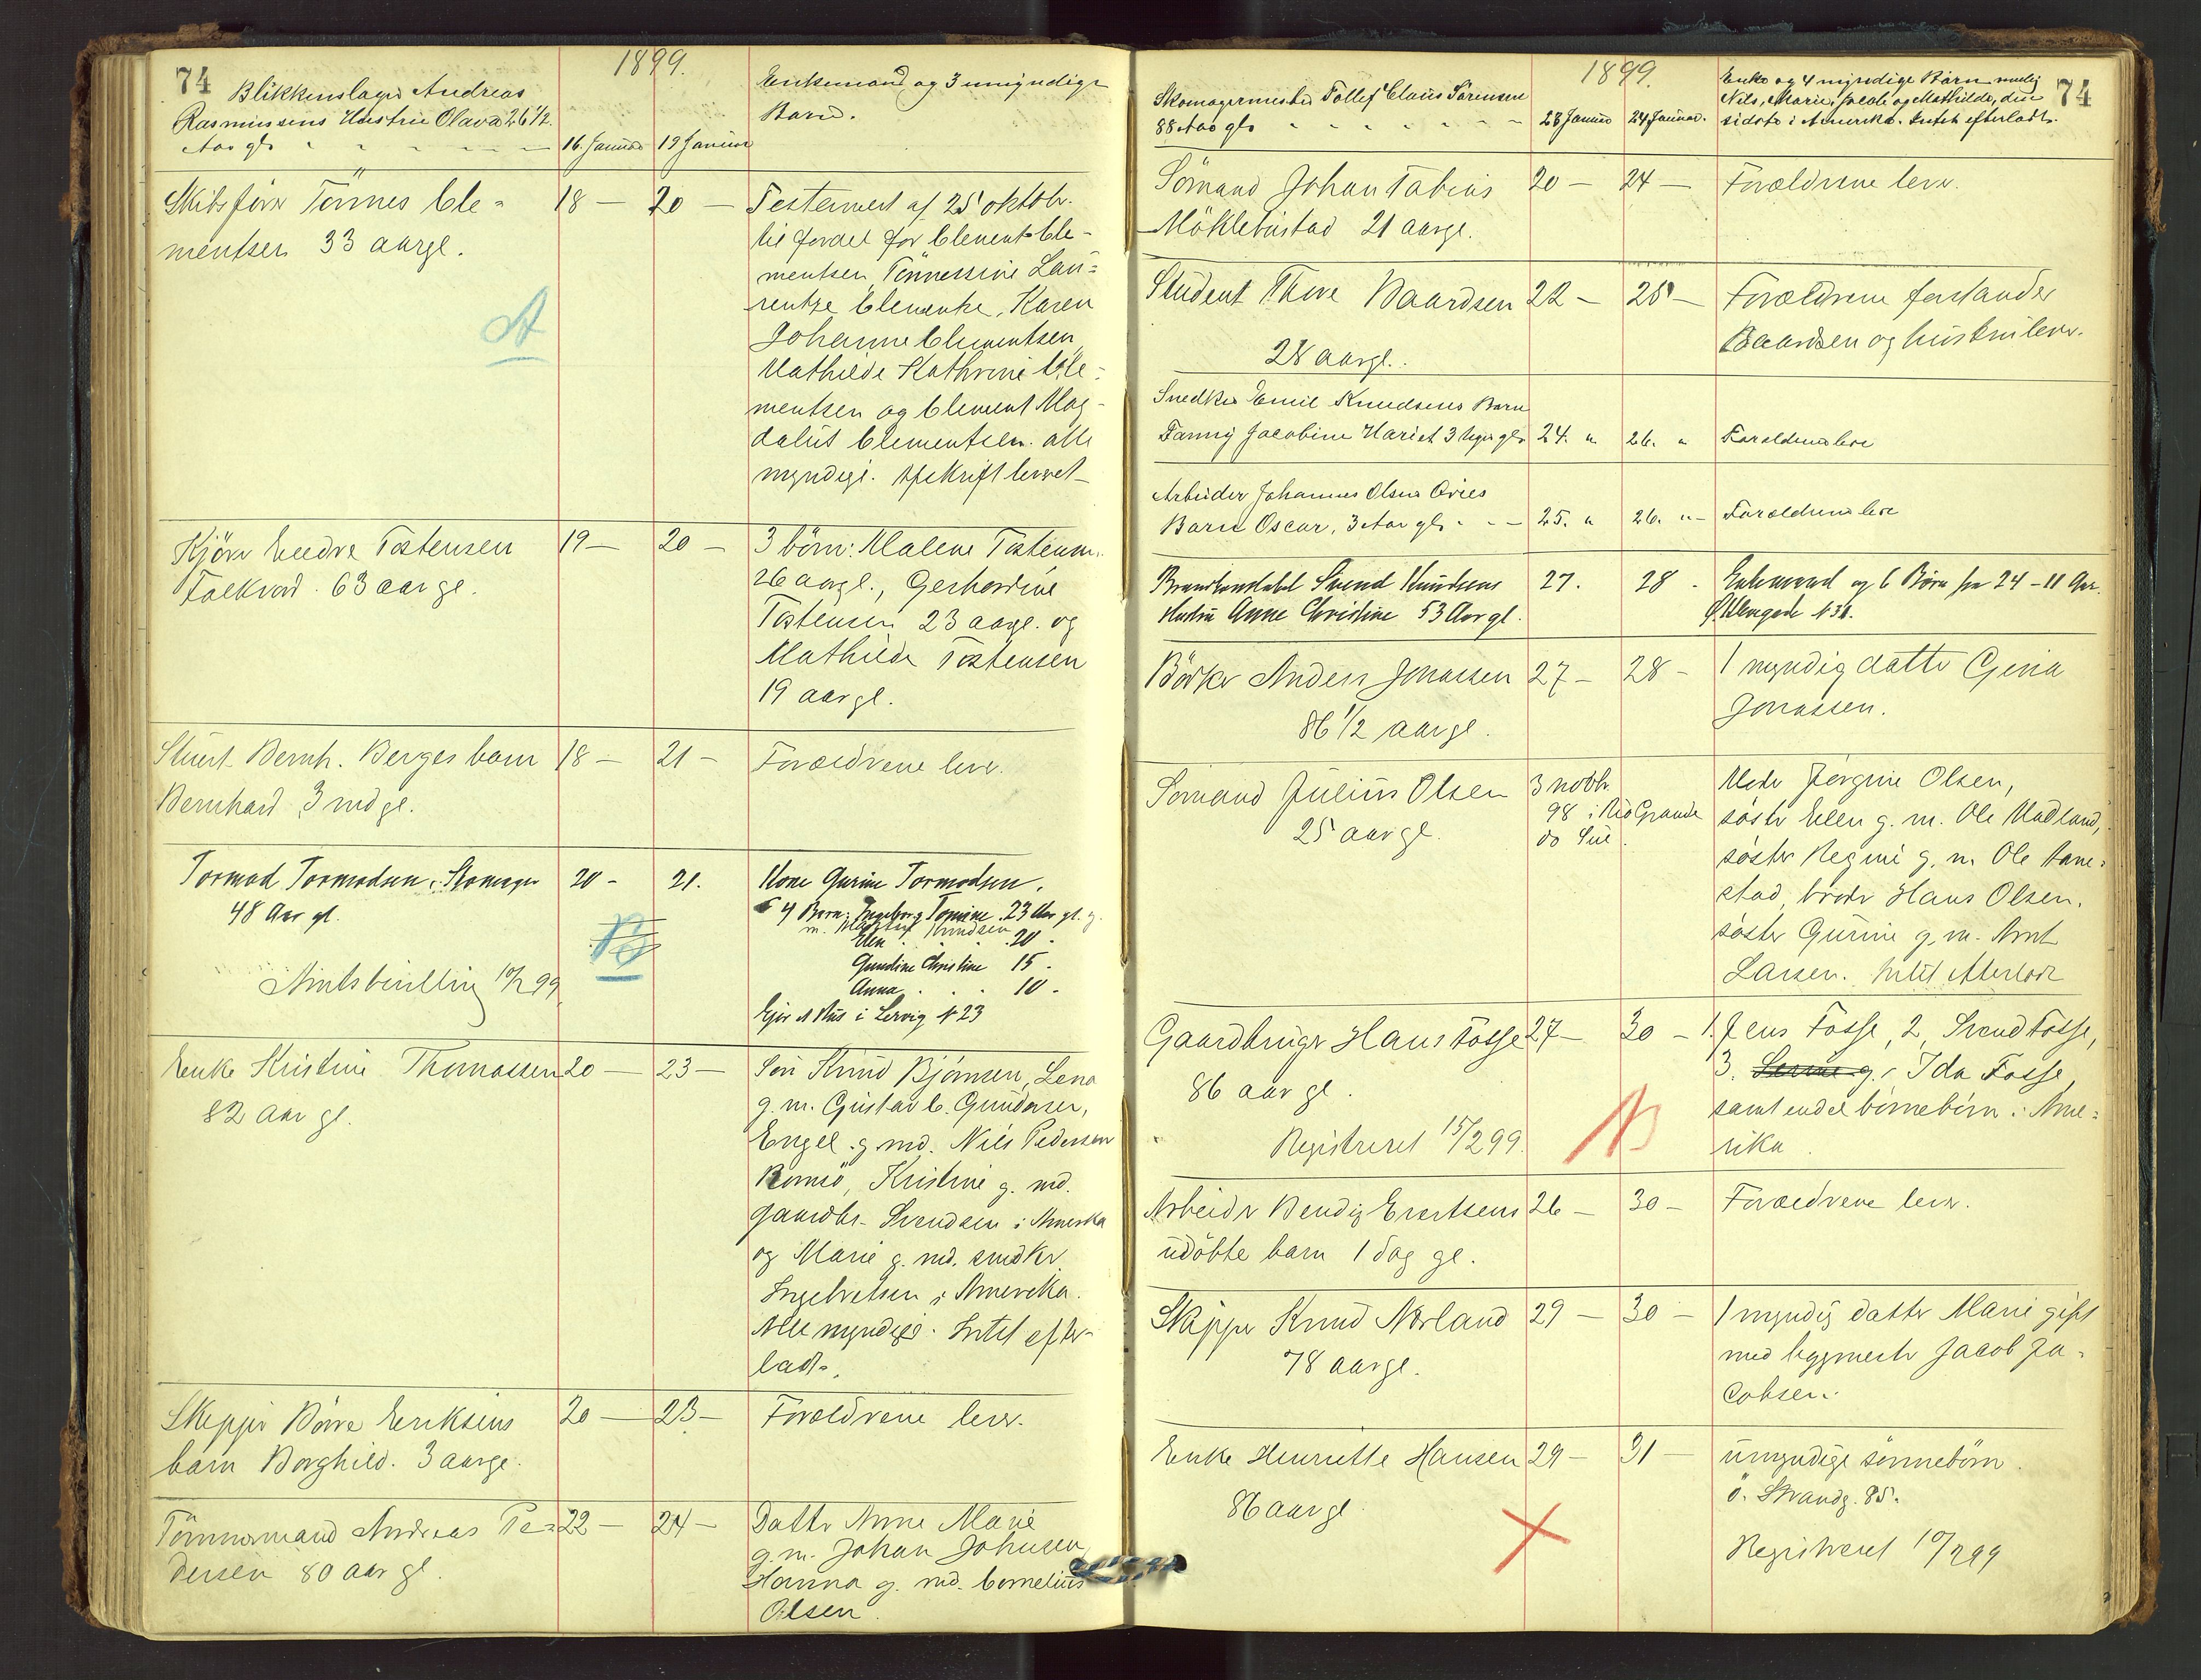 74
1899.
Blikkenslager Andreas
Rasmussens Hustru Olava 26 1/2
Aar gl. 16. Januar 19 Januar
Enkemand og 3 umyndige
Børn.
Skibsfører Tönnes Cle-
mentsen 33 aargl.
18 — 20 —
Testament af 25 oktobr.
til fordel for Clement Cle-
mentsen, Tönnessine Lau-
rentze Clementse, Karen
Johanne Clementsen,
Mathilde Kathrine Cle-
mentsen og Clement Mag-
dalus Clementsen. alle
myndige. Afskrift levert
A
Kjörer Endre Tostensen
Folkvord. 63 aar gl.
19 — 20 —
3 börn: Malene Tostensen.
26 aargl., Gerhardine
Tostensen 23 aargl. og
Mathilde Tostensen
19 aar gl.
Stuert Bernh. Berges barn
Bernhard 3 md gl.
18 — 21 —
Forældrene lever.
Tormod Tormodsen, Skomager
48 Aar gl.
20 - 21.
Kone Gurine Tormodsen.
4 Børn: Ingeborg Tomine. 23 Aar gl. g.
m. Knudsen
Elen . . . 20 -
Gundine Christine 15 -
Anna . . . 10 -
Ejer et Hus i Lervig N 23
B
10/2 99
Enke Kristine Thomassen
82 aar gl.
20 — 23 —
Sön Knud Björnsen, Lena
g. m. Gustav C. Gundersen,
Engel g. md. Nils Pedersen
Romsö, Kristine g. md.
Svendsen i Amerika
og Marie g. md. snedker
Ingebretsen i Amerika.
Alle myndige. Intet efter-
ladt.
Skipper Börre Eriksens
barn Borghild. 3 aargl.
20 — 23 —
Forældrene lever.
Tömmermand Andreas Pe-
dersen 80 aar gl.
22 — 24 —
Datter Anne Marie
g. m. Johan Johnsen,
Hanna g. md. Cornelius
Olsen.
74
1899.
Skomagermester Tollef Claus Sörensen
88 Aar gl. 23 Januar 24 Januar.
Enke og 4 myndige Børn nemlig
Nils, Marie, Jacob og Mathilde, den
sidste i Amerika. Intet efterladt.
Sömand Johan Tobias
Möklebustad 21 aargl.
20 — 24 —
Forældrene lever.
Student Thore Baardsen
28 aargl.
22 — 25 —
Forældrene forstander
Baardsen og hustru lever.
Snedker Emil Knudsens Barn
Fanny Jacobine Hariet 3 Uger gl. 24. " 26. " Forældrene leve
Arbeider Johannes Olsen Qvies
Barn Oscar, 3 Aar gl. 25. " 26. " Forældrene leve
Brandkonstabel Svend Knudsens
Hustru Anne Christine 53 Aar gl.
27. 28 -
Enkemand og 6 Børn fra 24 - 11 Aar.
N 31.
Bödker Anders Jonassen
86 1/2 aargl.
27 — 28 —
1 myndig datter Gina
Jonassen.
Sömand Julius Olsen
25 aar gl.
3 novbr.
98 i Rio Grande
do Sul.
Moder Jörgine Olsen,
söster Ellen g. m. Ole Madland,
söster Regine g. m. Ole Tane-
stad, broder Hans Olsen,
söster Gurine g. m. Arnt
Larsen. Intet efterladt
Gaardbruger Hans Fosse
86 aar gl.
27 — 30 —
Registreret 15/2 99.
1. Jens Fosse, 2, Svend Fosse,
3. Ida Fosse,
samt endel börnebörn i Ame-
rika.
Arbeider Bendig Evertsens
udöbte barn 1 dag gl.
26 — 30 —
Forældrene lever.
Skipper Knud Norland
78 aargl.
29 — 30 —
1 myndig datter Marie gift
med bygmester Jacob Ja-
cobsen.
Enke Henriette Hansen
86 aar gl
29 — 31 —
umyndige sönnebörn.
Ö. Strandg. 85.
Registreret 10/2 99